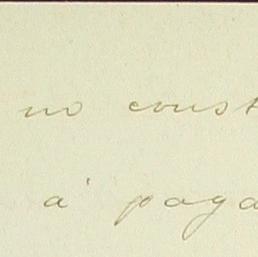 no const
á paga